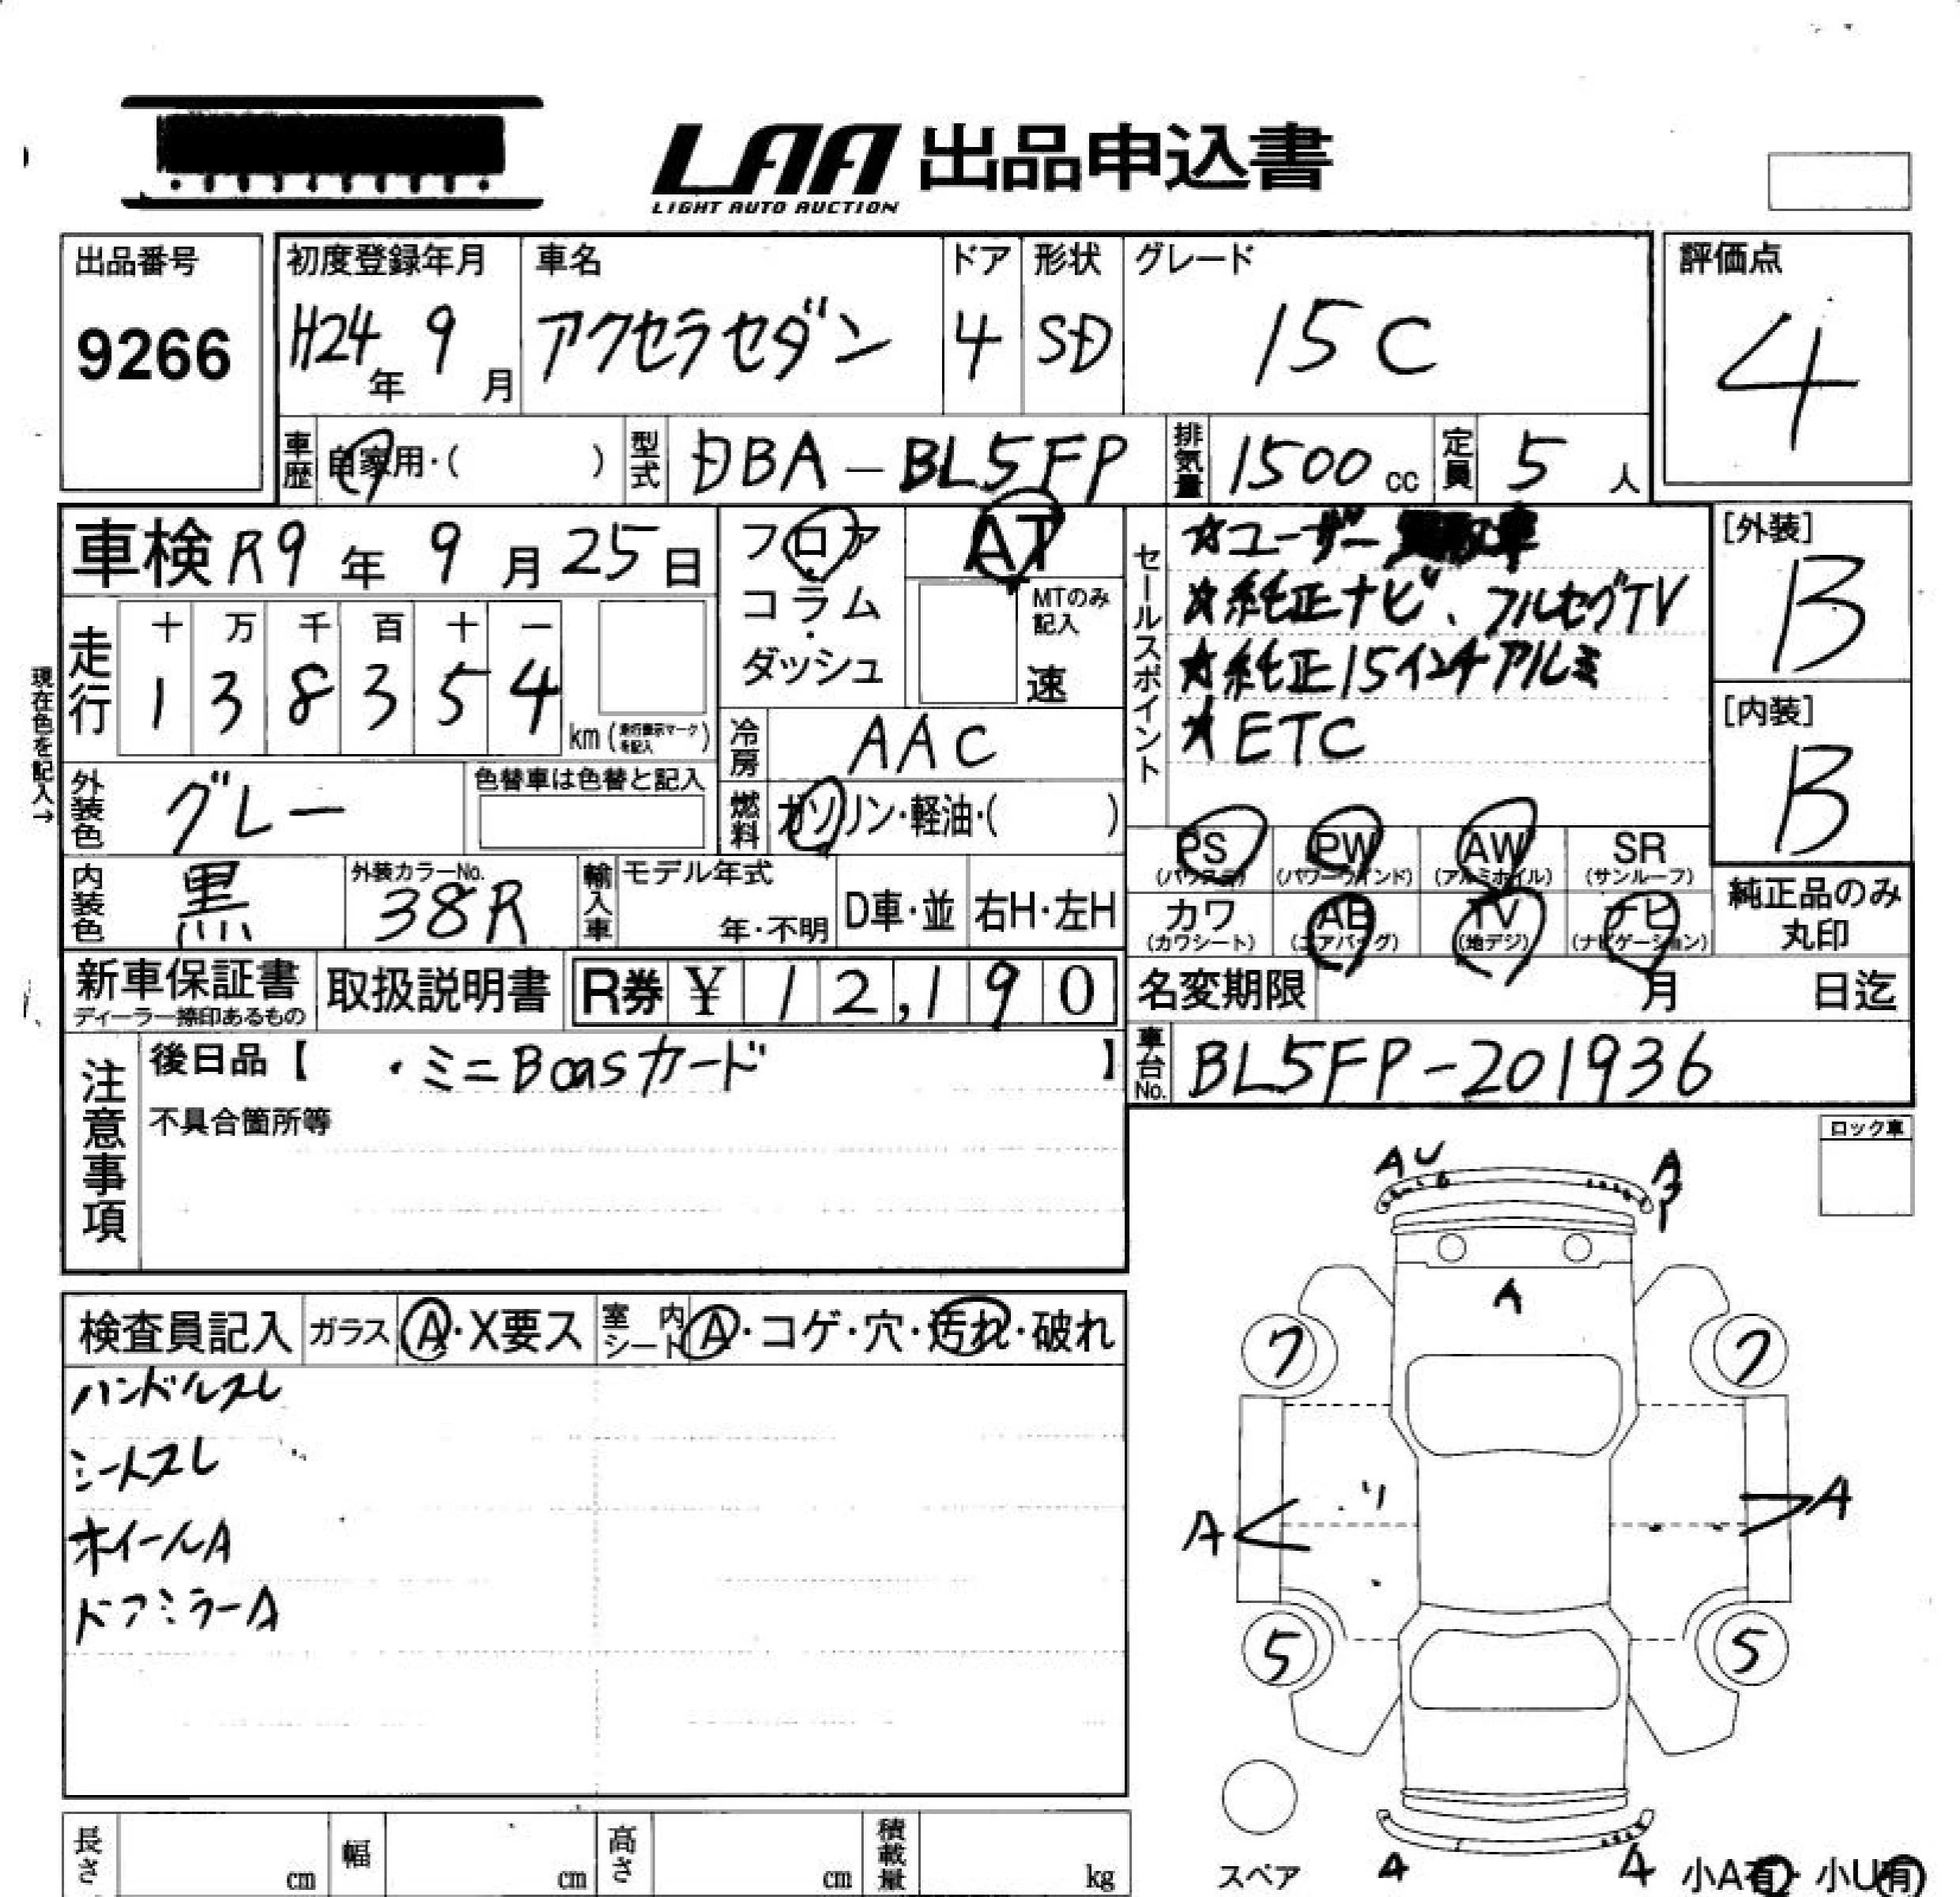 LAA 出品申込書
LIGHT AUTO AUCTION
出品番号
9266
初度登録年月
H24年 9月
車名
アクセラセダン
ドア
4
形状
SD
グレード
15C
評価点
4
車歴 自家用・( )
型式 DBA-BL5FP
排気量 1500cc
定員 5人
車検 R9年 9月25日
現在色を記入→
走行
十 万 千 百 十 一
1 3 8 3 5 4
km(走行表示マークを記入)
フロア
コラム
ダッシュ
AT
MTのみ記入
速
冷房 AAC
燃料 ガソリン・軽油・( )
セールスポイント
☆ユーザー
☆純正ナビ、フルセグTV
☆純正15インチアルミ
☆ETC
[外装]
B
[内装]
B
外装色 グレー
色替車は色替と記入
内装色 黒
外装カラーNo.
38R
輸入車 モデル年式
年・不明
D車・並 右H・左H
PS (パワステ)
PW (パワーウインド)
AW (アルミホイル)
SR (サンルーフ)
カワ (カワシート)
AB (エアバッグ)
TV (地デジ)
ナビ (ナビゲーション)
純正品のみ
丸印
新車保証書
ディーラー捺印あるもの
取扱説明書
R券 ¥ 12,190
名変期限 月 日迄
注意事項
後日品【 ・ミニBcasカード 】
不具合箇所等
車台No. BL5FP-201936
ロック車
検査員記入 ガラス A・X要ス 室内シート A・コゲ・穴・汚れ・破れ
ハンドルスレ
シートスレ
ホイールA
ドアミラーA
AU
A
A
7 7
A A
5 5
スペア
小A有・小U有
長さ cm
幅 cm
高さ cm
積載量 kg